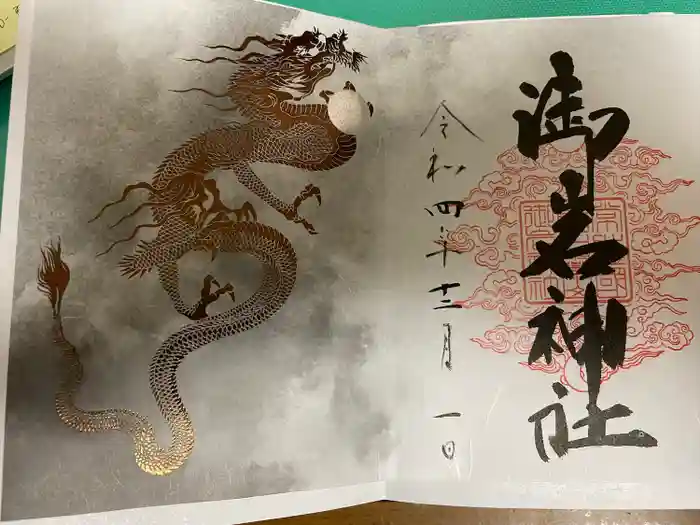 御岩神社
令和四年十二月一日